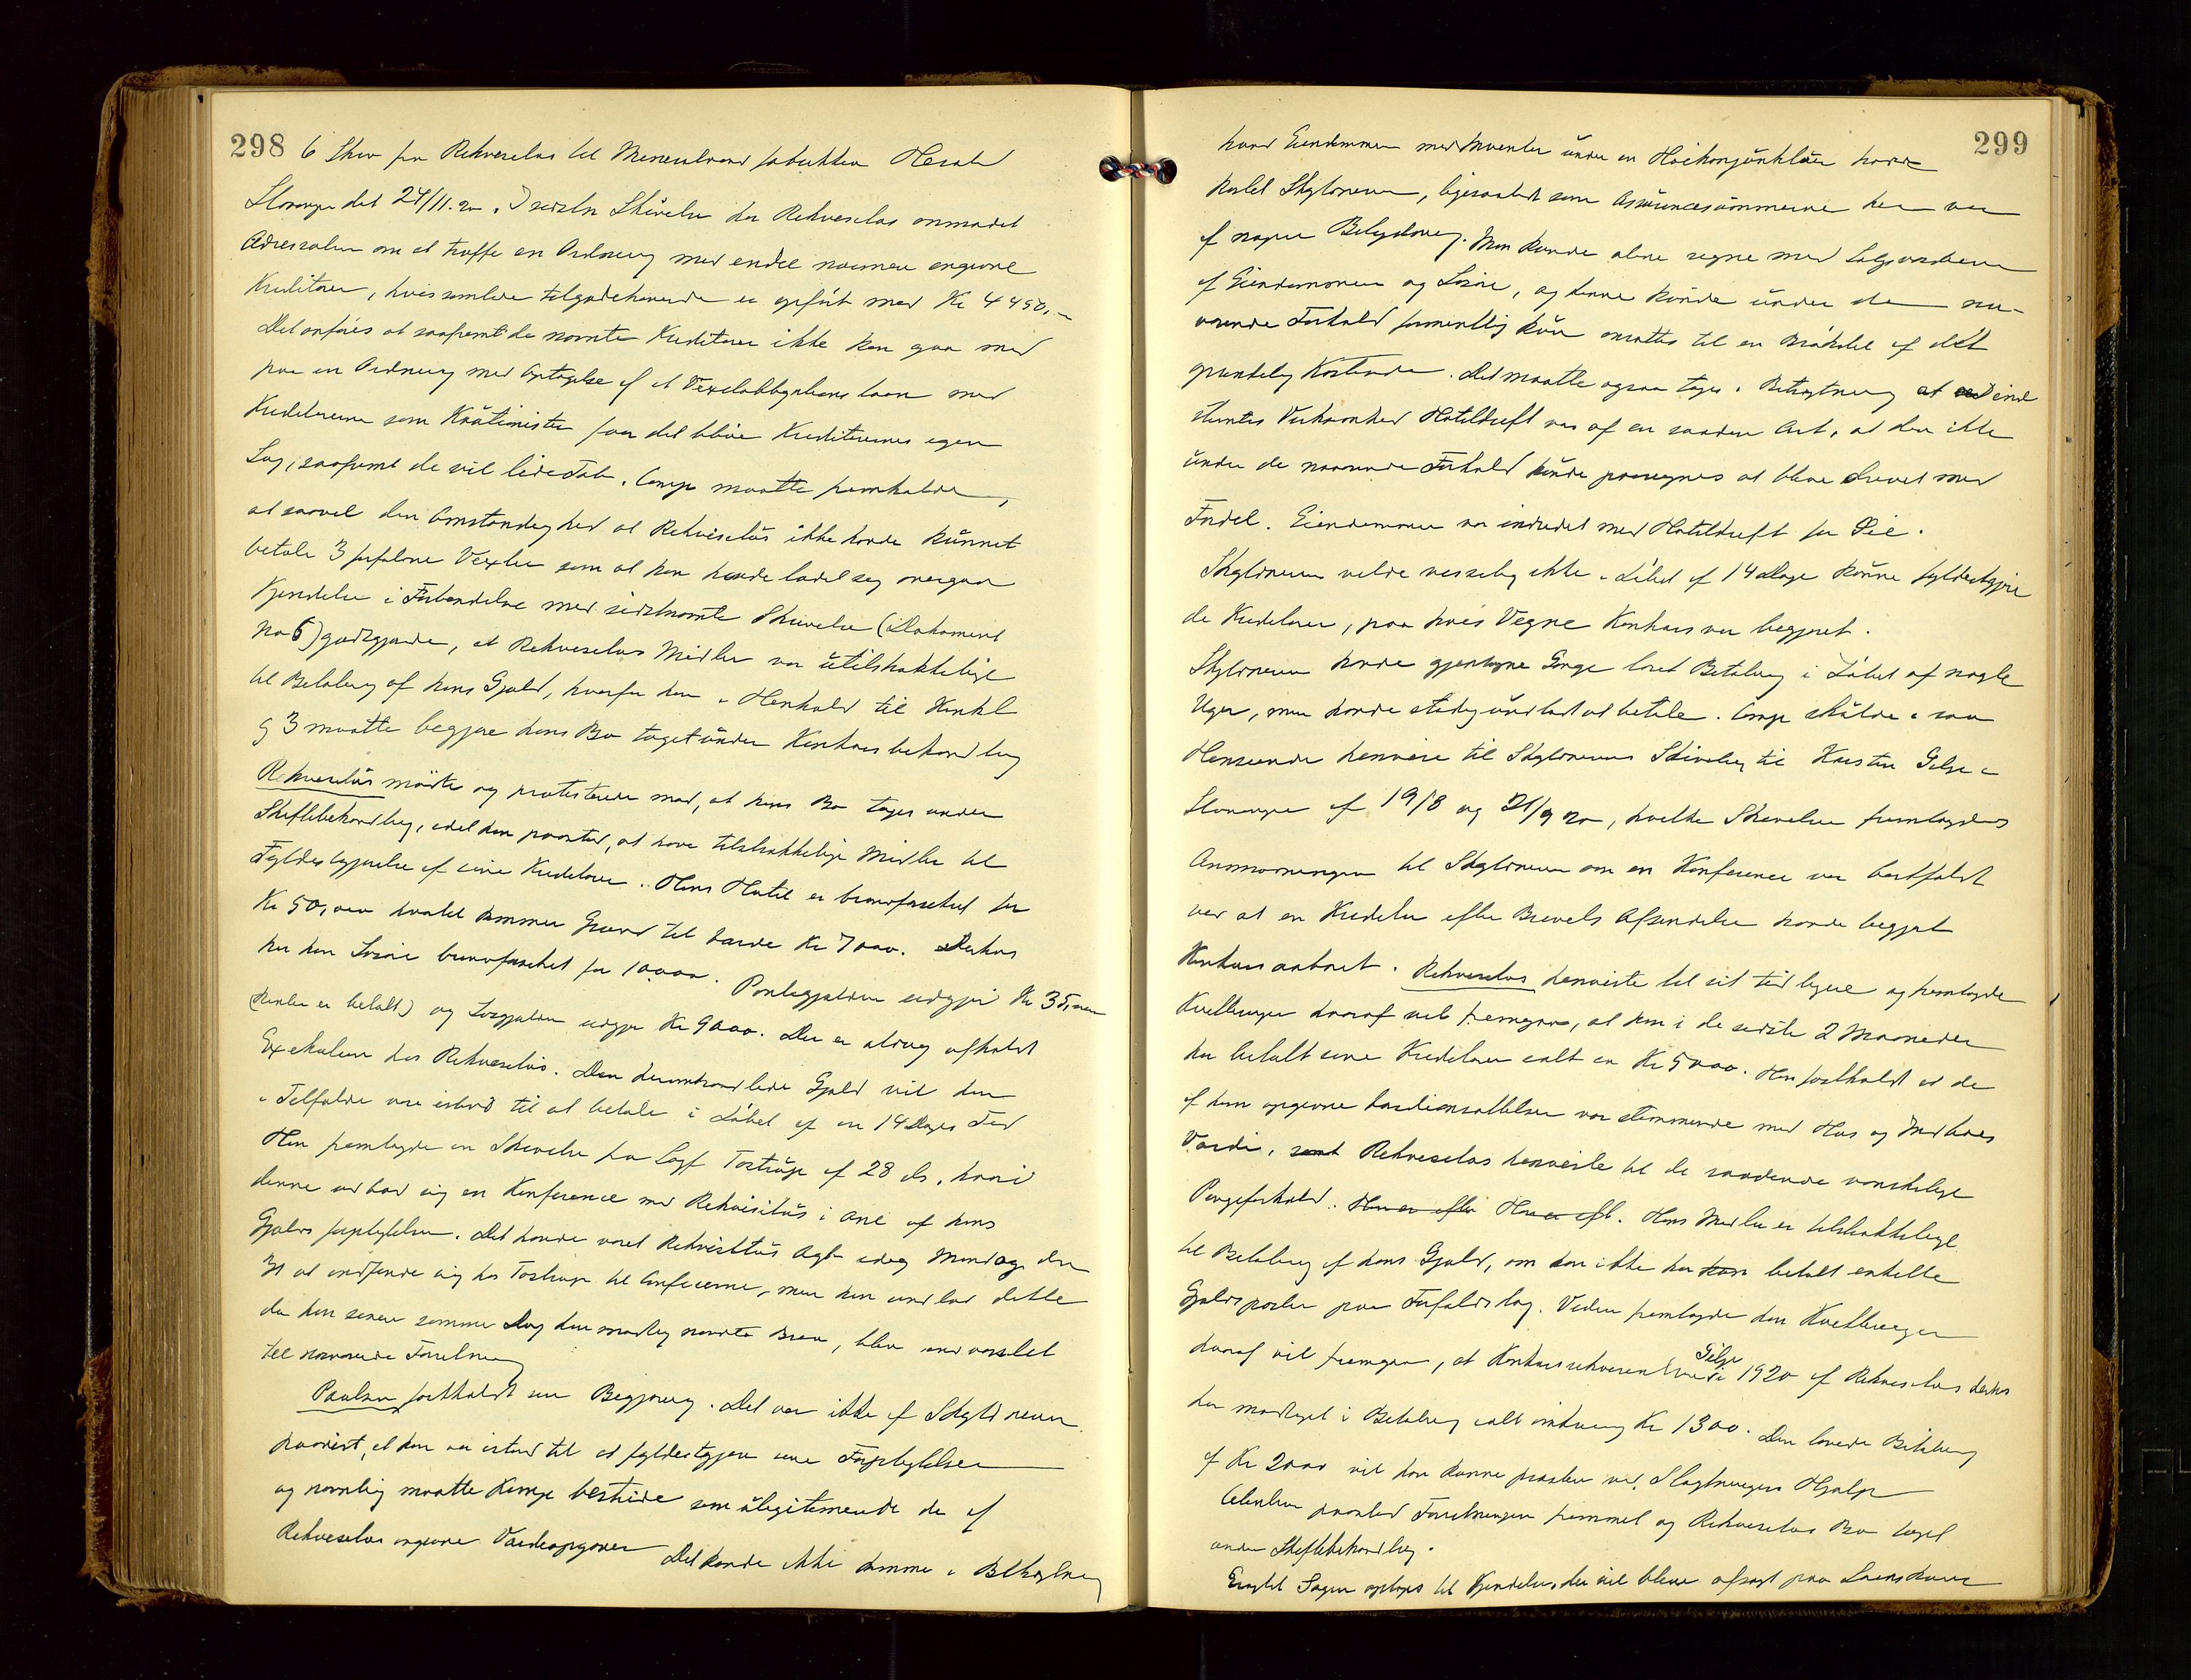 298
6 Skr. fra Rekvesitus til Mineralvandfabrikken Herold
Stavanger dat 24/11.20. I sidste Skrivelse har Rekvesitus anmodet
Adressaten om at træffe en Ordning med endel nævnte angivne
Kreditorer, hvis samlede tilgodehavende er opført med Kr 4450,-
Det anføres at saafremt de nævnte Kreditorer ikke kan gaa med
paa en Ordning med Optagelse af et Vexelobligations laan med
Kreditorerne som Kautionister faar det blive Kreditorernes egen
Sag, saafremt de vil lide Tab. Comp maatte fremholde,
at saavel den Omstændighed at Rekvisitus ikke havde kunnet
betale 3 forfaldne Vexler som at han havde ladet sig overgaa
Kjendelse i Forbindelse med sidstnævnte Skrivelse (Dokument
No 6) godtgjorde, at Rekvesitus Midler var utilstrækkelige
til Betaling af hans Gjæld, hvorfor han i Henhold til Konkl
§ 3 maatte begjære hans Bo taget under Konkursbehandling
Rekvesitus mødte og protesterede mod, at hans Bo tages under
Skiftebehandling, idet han paastod, at have tilstrækkelige Midler til
Fyldestgjørelse af sine Kreditorer. Hans Hotel er brandforsikret for
Kr 50,000 hvortil kommer Grund til Værdi Kr 7000. Derhos
har han Løsøre brandforsikret for 10000. Pantegjælden udgjør Kr 35,000
(Renter er betalt) og Løsgjælden udgjør Kr 9000. Der er aldrig afholdt
Exekution hos Rekvesitus. Den deromhandlede Gjæld vil han
i Tilfælde være istand til at betale i Løbet af en 14 Dages Tid
Han fremlagde en Skrivelse fra Sagf Tostrup af 28 ds, hvori
denne udbad sig en Konference med Rekvisitus i Anl af hans
Gjælds forpligtelser. Det havde været Rekvisitus Agt idag Mandag den
at indfinde sig hos Tostrup til Conference, men han undlod dette
da han senere samme Dag han modtog nævnte Brev, blev indvarslet
til nærværende Forretning
Paulsen fastholdt sin Begjæring. Det var ikke af Skyldneren
paavist, at han var istand til at fyldestgjøre sine Forpligtelser
og navnlig maatte Komp bestride som ulegitimerede de af
Rekvesitus angivne Værdiopgaver Det kunde ikke komme i Betragtning
299
hvad Eiendommen med Inventar under en Høikonjunktur havde
kostet Skyldneren, ligesaalidt som Assurancesummerne her var
af nogen Betydning. Man kunde alene regne med Salgsværdien
af Eiendommen og Løsøre, og denne kunde under de nu-
værende Forhold formentlig kun ansættes til en Brøkdel af det
oprindelig Kostende. Det maatte ogsaa tages i Betragtning at ind
stemtes Virksomhed Hoteldrift var af en saadan Art, at den ikke
under de nærværende Forhold kunde paaregnes at blive drevet med
Fordel. Eiendommen var indredet med Hoteldrift for Øie.
Skyldneren vilde visselig ikke i Løbet af 14 Dage kunne fyldestgjøre
de Kreditorer, paa hvis Vegne Konkurs var begjæret.
Skyldneren havde gjentagne Gange lovet Betaling i Løbet af nogle
Uger, men havde stadig undladt at betale. Comp skulde i saa
Henseende henvise til Skyldnerens Skrivelse til Karsten Gilje i
Stavanger af 19/8 og 21/9 20, hvilke Skrivelser fremlagdes
Anmodningen til Skyldneren om en Konference var bortfaldt
ved at en Kreditor efter Brevets Afsendelse havde begjært
Konkurs aabnet. Rekvesitus henviste til sit tidligere og fremlagde
Kvitteringer hvoraf vil fremgaa, at han i de sidste 2 Maaneder
har betalt sine Kreditorer ialt ca Kr 5000. Han fastholdt at de
af ham opgivne Værdiansættelser var stemmende med Hus og Indbos
Værdi, samt Rekvesitus henviste til de raadende vanskelige
Pengeforhold. Han er efter Han er eft. Hans Midler er tilstrækkelige
til Betaling af hans Gjæld, om han ikke har kan betalt enkelte
Gjældsposter paa Forfaldsdag. Videre fremlagde han Kvitteringer
hvoraf vil fremgaa, at Konkursrekvirenten Gilje i 1920 af Rekvesitus derhos
har modtaget i Betaling ialt omkring Kr 1300. Den lovede Betaling
af Kr 2000 vil han kunne præstere ved Slægtningers Hjælp
Citanten paastod Forretningen fremmet og Rekvesitus Bo taget
under Skiftebehandling.
Eragtet Sagen optages til Kjendelse, der vil blive afsagt paa Lensmandens